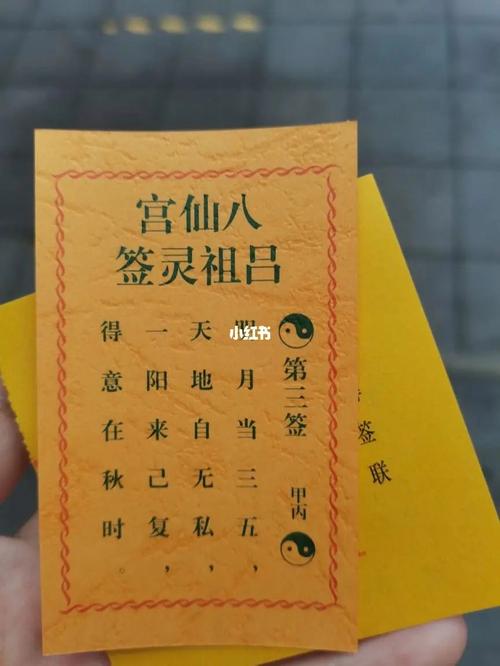 八仙宫
吕祖灵签
第三签 甲丙
明月当三五，
天地自无私，
一阳来己复，
得意在秋时。
小红书
签
联